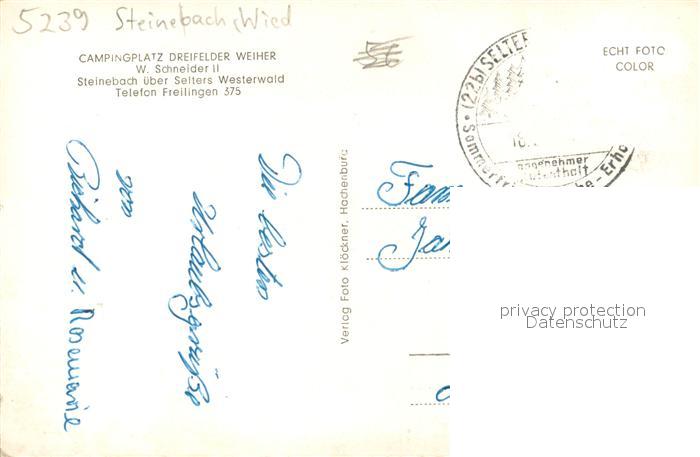 5239 Steinebach, Wied
CAMPINGPLATZ DREIFELDER WEIHER
W. Schneider II
Steinebach über Selters Westerwald
Telefon Freilingen 375
ECHT FOTO
COLOR
(22b) SELTER
Sommerfri
he - Erho
18.
angenehmer
ufenthalt
Die besten
Urlaubsgrüße
von
Richard u. Rosemarie
Verlag Foto Klöckner, Hachenburg
Fam
Ja
privacy protection
Datenschutz